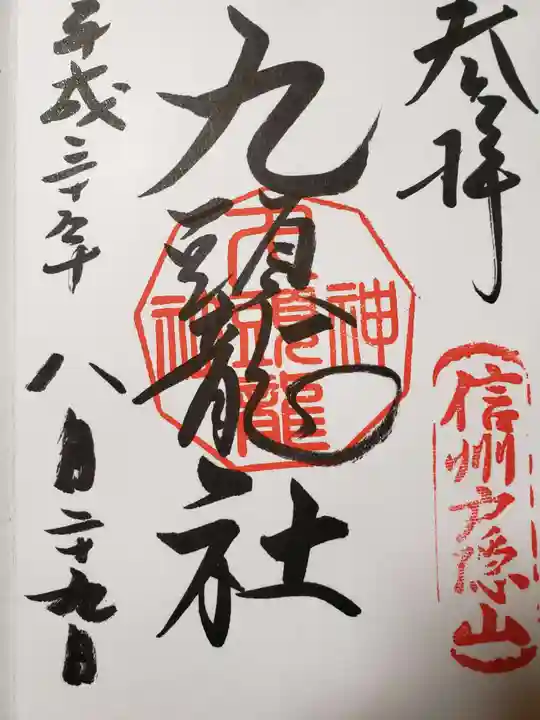 参拝
信州戸隠山
九頭龍社
九頭龍
神社
平成三十年
八月二十九日